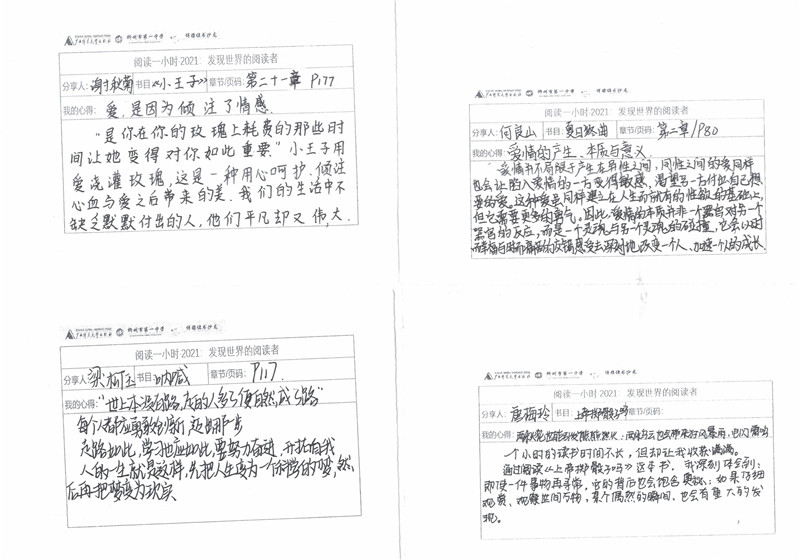 广西师范大学出版社 柳州市第一中学
阅读一小时2021：发现世界的阅读者
分享人：谢秋菊 书目《小王子》 章节/页码：第二十一章 P177
我的心得：爱，是因为倾注了情感.
"是你在你的玫瑰上耗费的那些时
间让她变得对你如此重要."小王子用
爱浇灌玫瑰，这是一种用心呵护.倾注
心血与爱之后带来的美.我们的生活中不
缺乏默默付出的人，他们平凡却又伟大.
柳州市第一中学
阅读一小时2021：发现世界的阅读者
分享人：何良山 书目：夏日终曲 章节/页码：第二章/P80
我的心得：爱情的产生、本质与意义
爱情并不局限于产生在异性之间，同性之间的爱同样
也会让陷入爱情的一方变得敏感，渴望另一方付出自己想
要的爱。这种爱是同样建立在人生而就有的性欲的基础上，
但它需要更多的勇气。因此，爱情的本质并非一个器官对另一个
器官的反应，而是一个灵魂与另一个灵魂的碰撞，它会以时
去深刻地改变一个人、加速个人的成长
广西师范大学出版社 柳州市第一中学
阅读一小时2021：发现世界的阅读者
分享人：梁柯玉 书目：呐喊 章节/页码：P117.
我的心得："世上本没有路，走的人多了便自然成了路"
每个人都应勇敢创新，走出那一步
走路如此，学习也应如此，要努力奋进，开拓自我
人的一生就是这样，先把人生变为一个梦，然
后再把梦变为现实
柳州市第一中学
阅读一小时2021：发现世界的阅读者
分享人：唐海玲 书目：上帝掷骰子吗 章节/页码：
我的心得：
一个小时的读书时间不长，但却让我收获满满。
通过阅读《上帝掷骰子吗》这本书，我深刻体会到：
即使一件事物再寻常，它的背后也会饱含奥妙；如果仔细
观察、观察世间万物，某个偶然的瞬间，也会有重大的发
现。